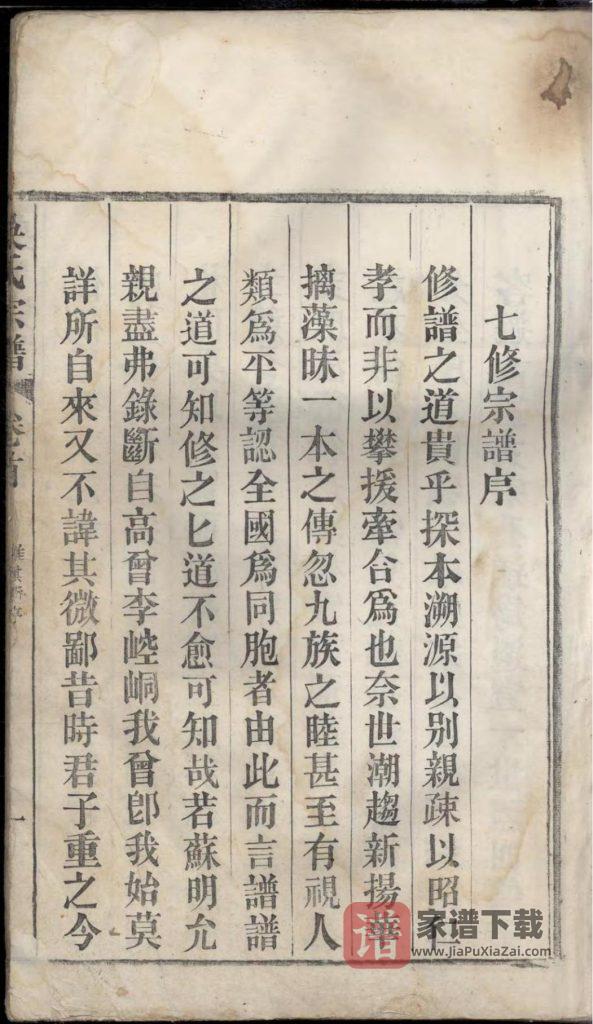 七修宗譜序
修譜之道貴乎探本溯源以別親疎以昭仁
孝而非以攀援牽合爲也奈世潮趨新揚華
摛藻昧一本之傳忽九族之睦甚至有視人
類爲平等認全國爲同胞者由此而言譜譜
之道可知修之匕道不愈可知哉若蘇明允
親盡弗錄斷自高曾李崆峒我曾卽我始莫
詳所自來又不諱其微鄙昔時君子重之今
氏宗譜
卷首
一
譜
家谱下载
www.jiaPuXiaZai.com